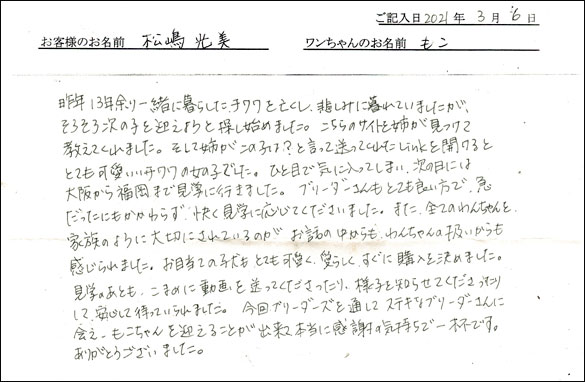 ご記入日 2021年 3月 6日
お客様のお名前 松嶋 光美 ワンちゃんのお名前 もこ
昨年13年余り一緒に暮らしたチワワを亡くし、悲しみに暮れていましたが、
そろそろ次の子を迎えようと探し始めました。こちらのサイトを姉が見つけて
教えてくれました。そして姉がこの子は？と言って送ってくれたLinkを開けると
とても可愛いいチワワの女の子でした。ひと目で気に入ってしまい、次の日には
大阪から福岡まで見学に行きました。ブリーダーさんもとても良い方で、急
だったにもかかわらず、快く見学に応じてくださいました。また、全てのわんちゃんを
家族のように大切にされているのが お話の中からも、わんちゃんの扱いからも
感じられました。お目当ての子犬もとても可愛く、愛らしく、すぐに購入を決めました。
見学のあとも、こまめに動画を送ってくださったり、様子を知らせてくださったり
して、安心して待っていられました。今回ブリーダーズを通してステキなブリーダーさんに
会え、もこちゃんを迎えることが出来て本当に感謝の気持ちで一杯です。
ありがとうございました。